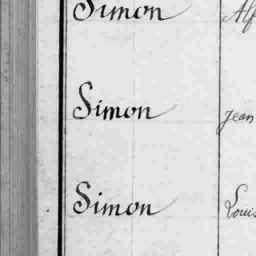 Simon Alf
Simon Jean
Simon Louis